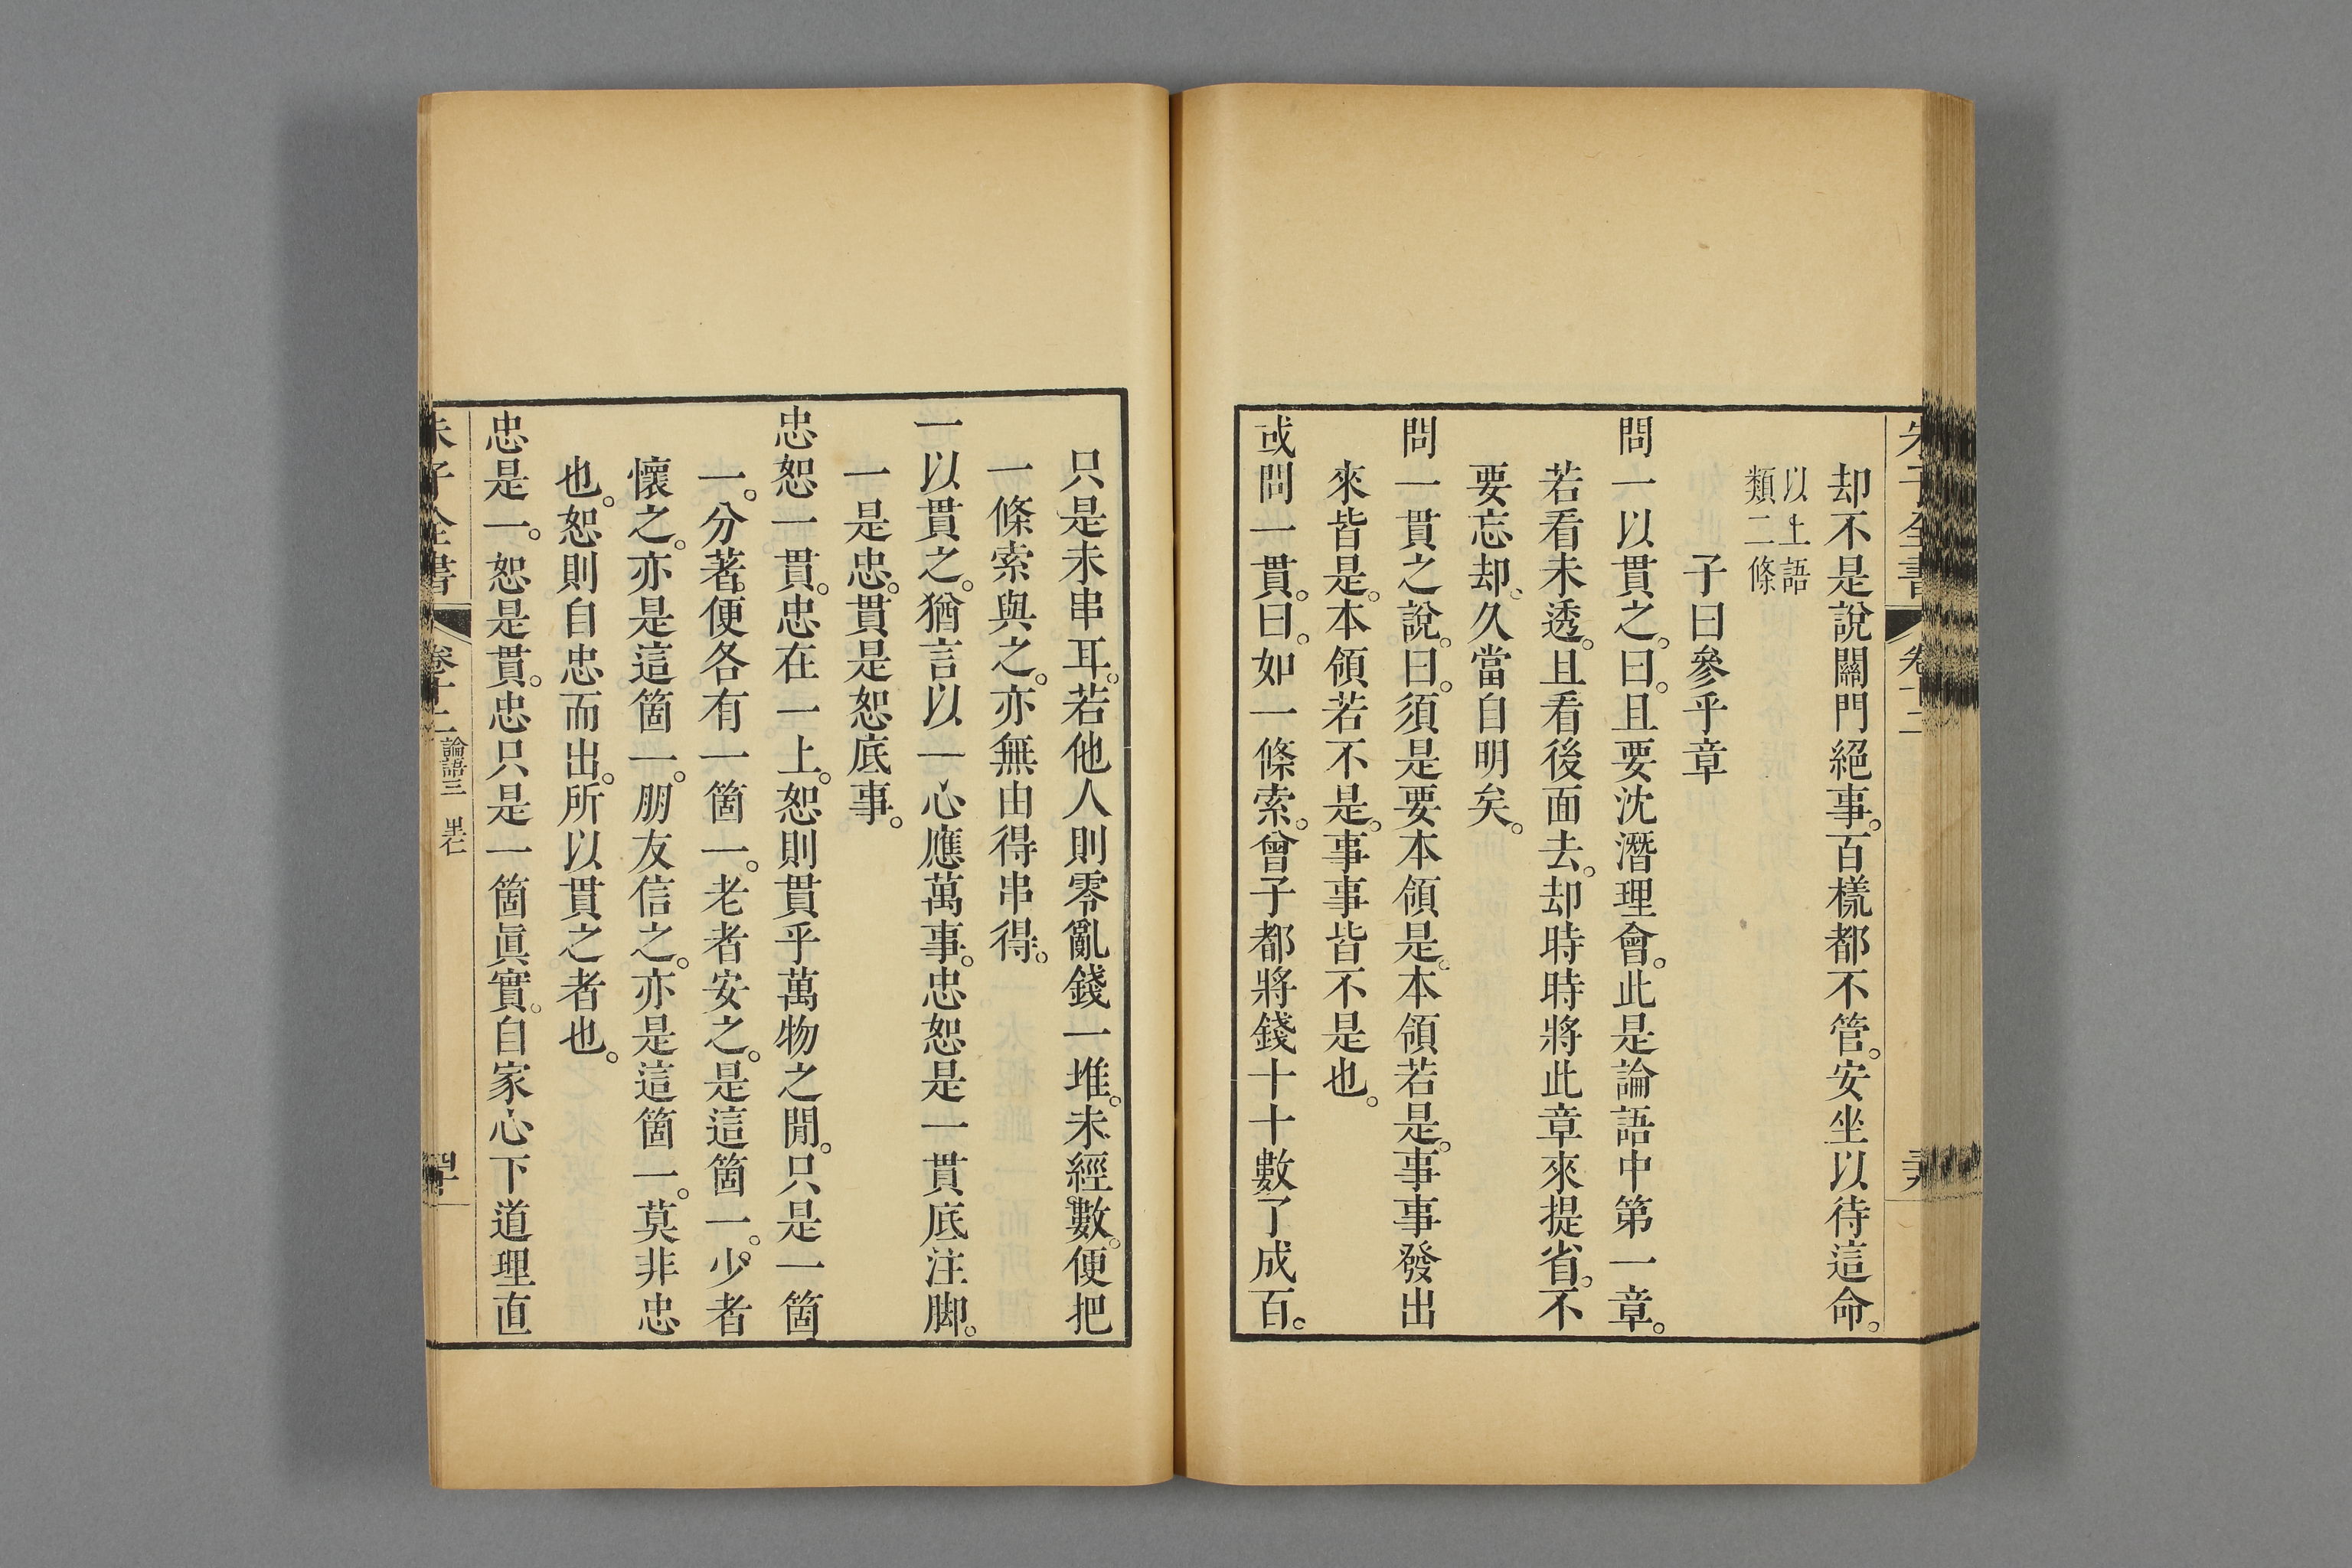 却不是說關門絕事。百樣都不管。安坐以待這命。
以上語
類二條
子曰參乎章
問一以貫之。曰。且要沈潛理會。此是論語中第一章。
若看未透。且看後面去。却時時將此章來提省。不
要忘却。久當自明矣。
問一貫之說。曰。須是要本領是。本領若是。事事發出
來皆是。本領若不是。事事皆不是也。
或問一貫。曰。如一條索。曾子都將錢十十數了成百。
只是未串耳。若他人則零亂錢一堆。未經數。便把
一條索與之。亦無由得串得。
一以貫之。猶言以一心應萬事。忠恕是一貫底注脚。
一是忠。貫是恕底事。
忠恕一貫。忠在一上。恕則貫乎萬物之閒。只是一箇
一。分著。便各有一箇一。老者安之。是這箇一。少者
懷之。亦是這箇一。朋友信之。亦是這箇一。莫非忠
也。恕則自忠而出。所以貫之者也。
忠是一。恕是貫。忠只是一箇眞實。自家心下道理直
朱子全書 卷十二 論語三 里仁